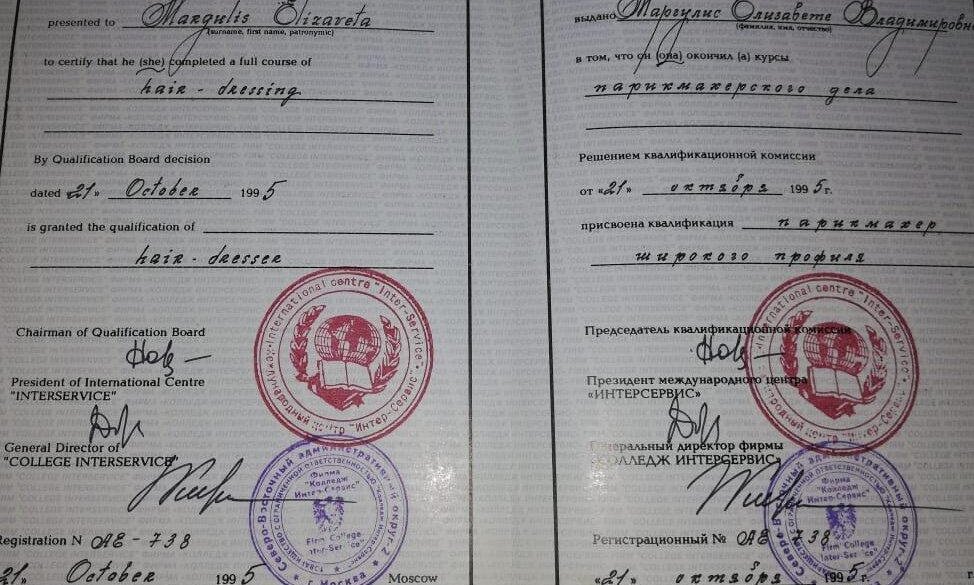 presented to Margulis Elizaveta
(surname, first name, patronymic)
to certify that he (she) completed a full course of
hair - dressing
By Qualification Board decision
dated «21» October 1995
is granted the qualification of
hair - dresser
Chairman of Qualification Board
President of International Centre
"INTERSERVICE"
General Director of
"COLLEGE INTERSERVICE"
Registration N AE - 738
21 October 1995 Moscow
International centre "Inter-Service"
Международный центр "Интер-Сервис"
Северо-Восточный административный округ-2
г. Москва
Фирма
"Колледж
Интер-Сервис"
Firm College
Inter-Service
выдано Маргулис Елизавете Владимировне
(фамилия, имя, отчество)
в том, что он (она) окончил (а) курсы
парикмахерского дела
Решением квалификационной комиссии
от «21» октября 1995 г.
присвоена квалификация парикмахер
широкого профиля
Председатель квалификационной комиссии
Президент международного центра
«ИНТЕРСЕРВИС»
Генеральный директор фирмы
«КОЛЛЕДЖ ИНТЕРСЕРВИС»
Регистрационный № АЕ 738
«21» октября 1995 г.
International centre "Inter-Service"
Международный центр "Интер-Сервис"
Фирма
"Колледж
Интер-Сервис"
Firm College
Inter-Service